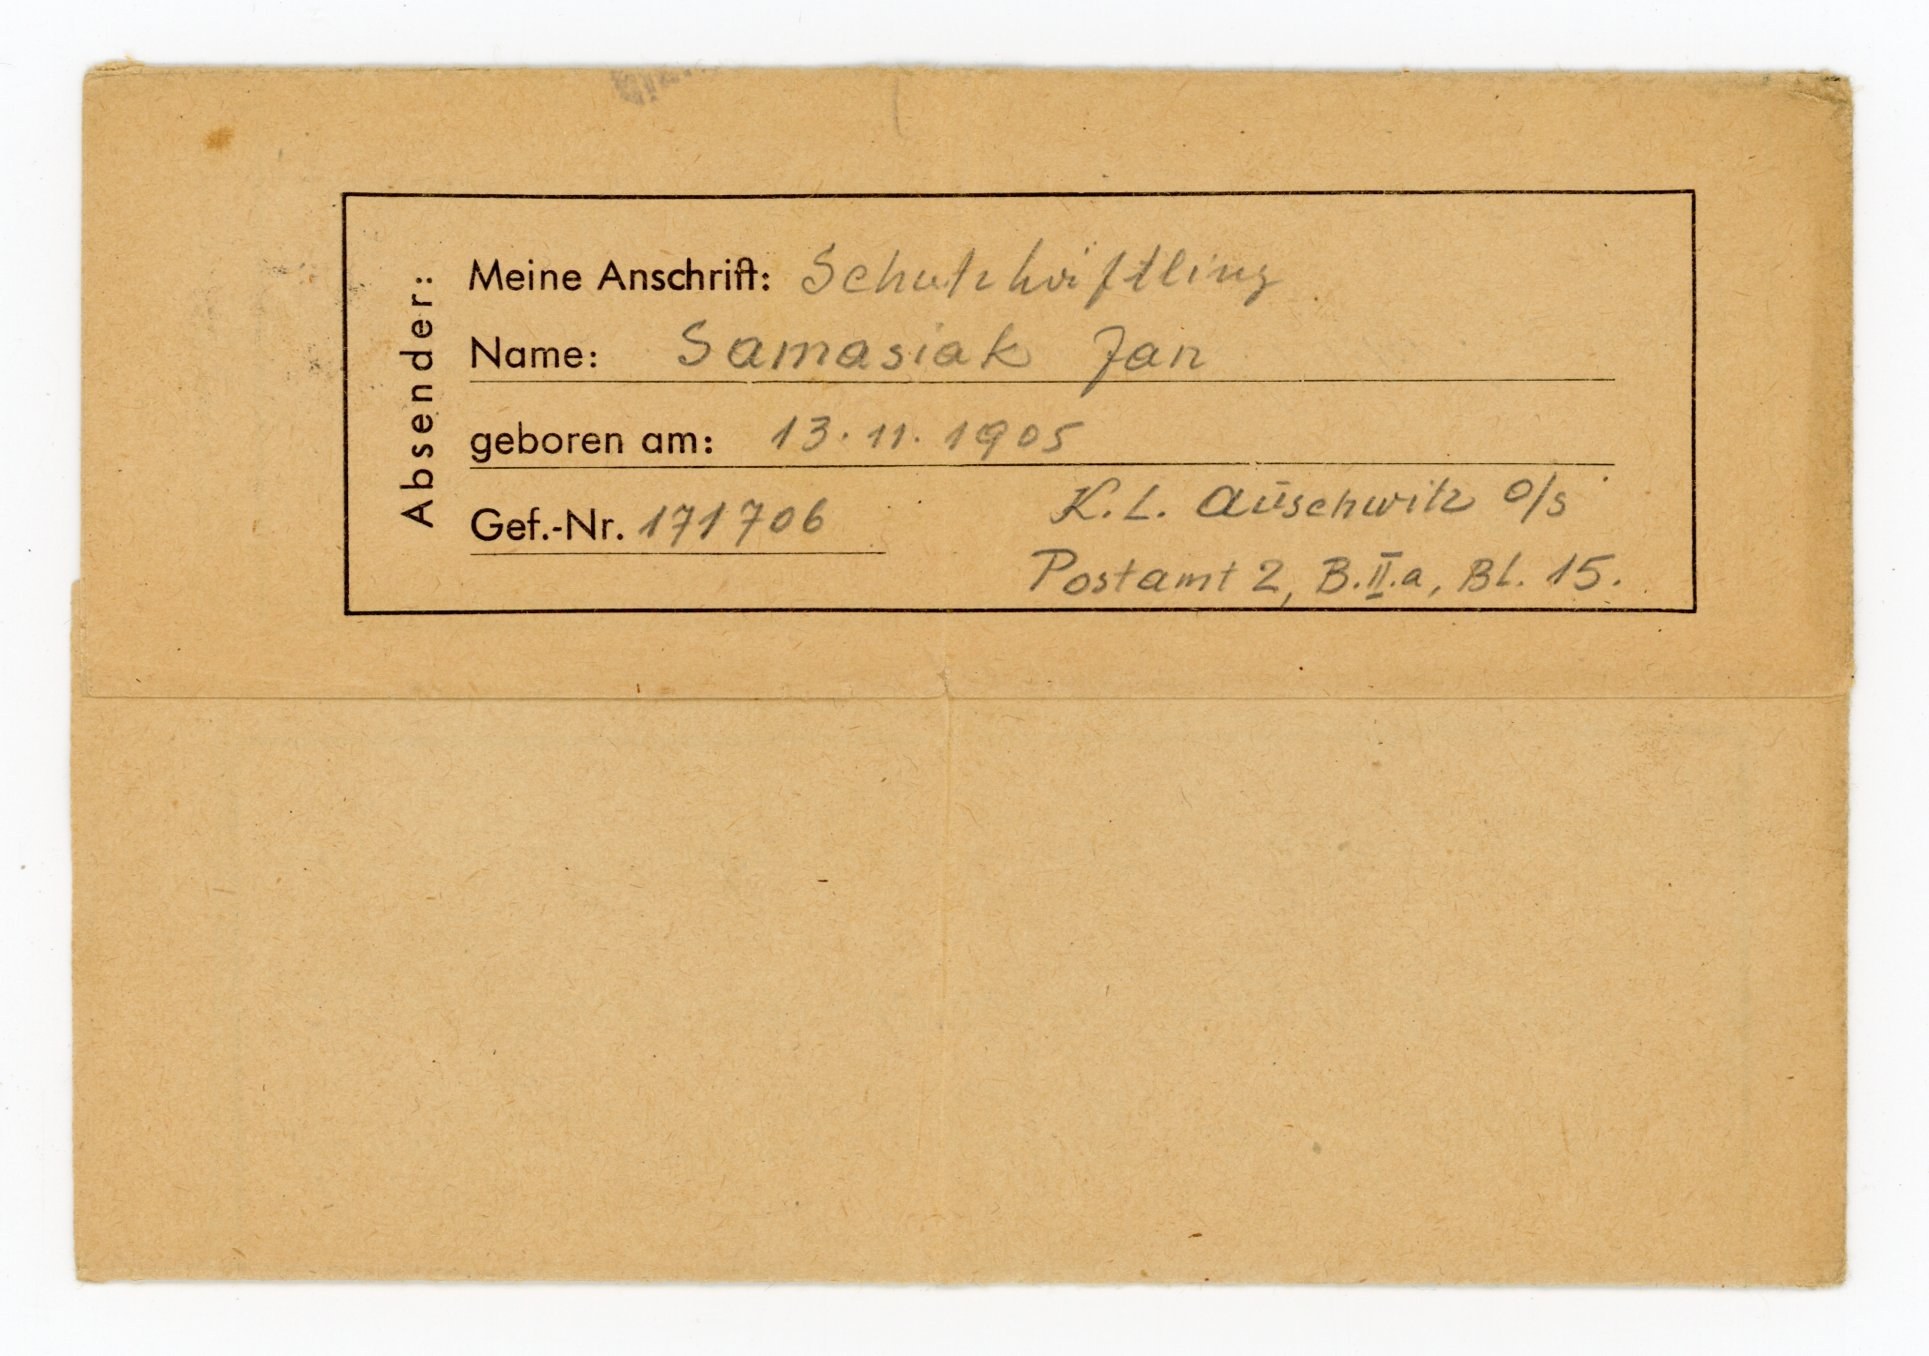 Absender:
Meine Anschrift: Schutzhäftling
Name: Samasiak Jan
geboren am: 13. 11. 1905
Gef.-Nr. 171706
K.L. Auschwitz O/S
Postamt 2, B.II.a, Bl. 15.